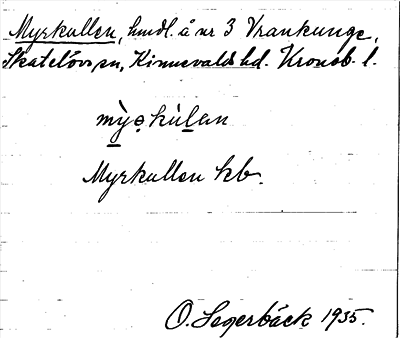 Myrkullen, hmdl. å nr 3 Vrankunge,
Skatelövs sn, Kinnevalds hd. Kronob. l.
mỳrkùlan
Myrkullen kb.
O. Segerbäck 1935.